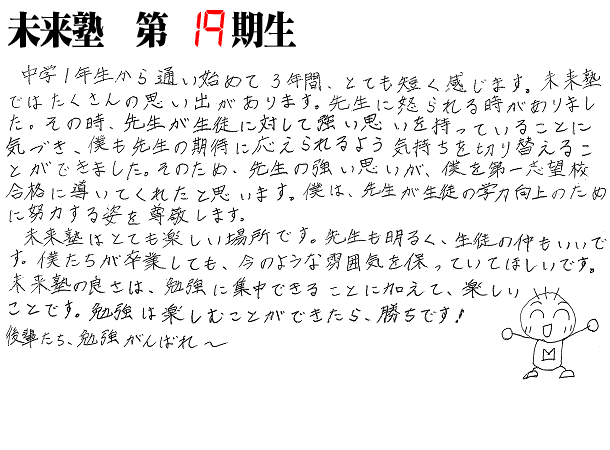 未来塾 第 19期生
中学1年生から通い始めて3年間、とても短く感じます。未来塾
ではたくさんの思い出があります。先生に怒られる時がありまし
た。その時、先生が生徒に対して強い思いを持っていることに
気づき、僕も先生の期待に応えられるよう気持ちを切り替えるこ
とができました。そのため、先生の強い思いが、僕を第一志望校
合格に導いてくれたと思います。僕は、先生が生徒の学力向上のため
に努力する姿を尊敬します。
未来塾はとても楽しい場所です。先生も明るく、生徒の仲もいいで
す。僕たちが卒業しても、今のような雰囲気を保っていてほしいです。
未来塾の良さは、勉強に集中できることに加えて、楽しい
ことです。勉強は楽しむことができたら、勝ちです!
後輩たち、勉強がんばれ〜
M